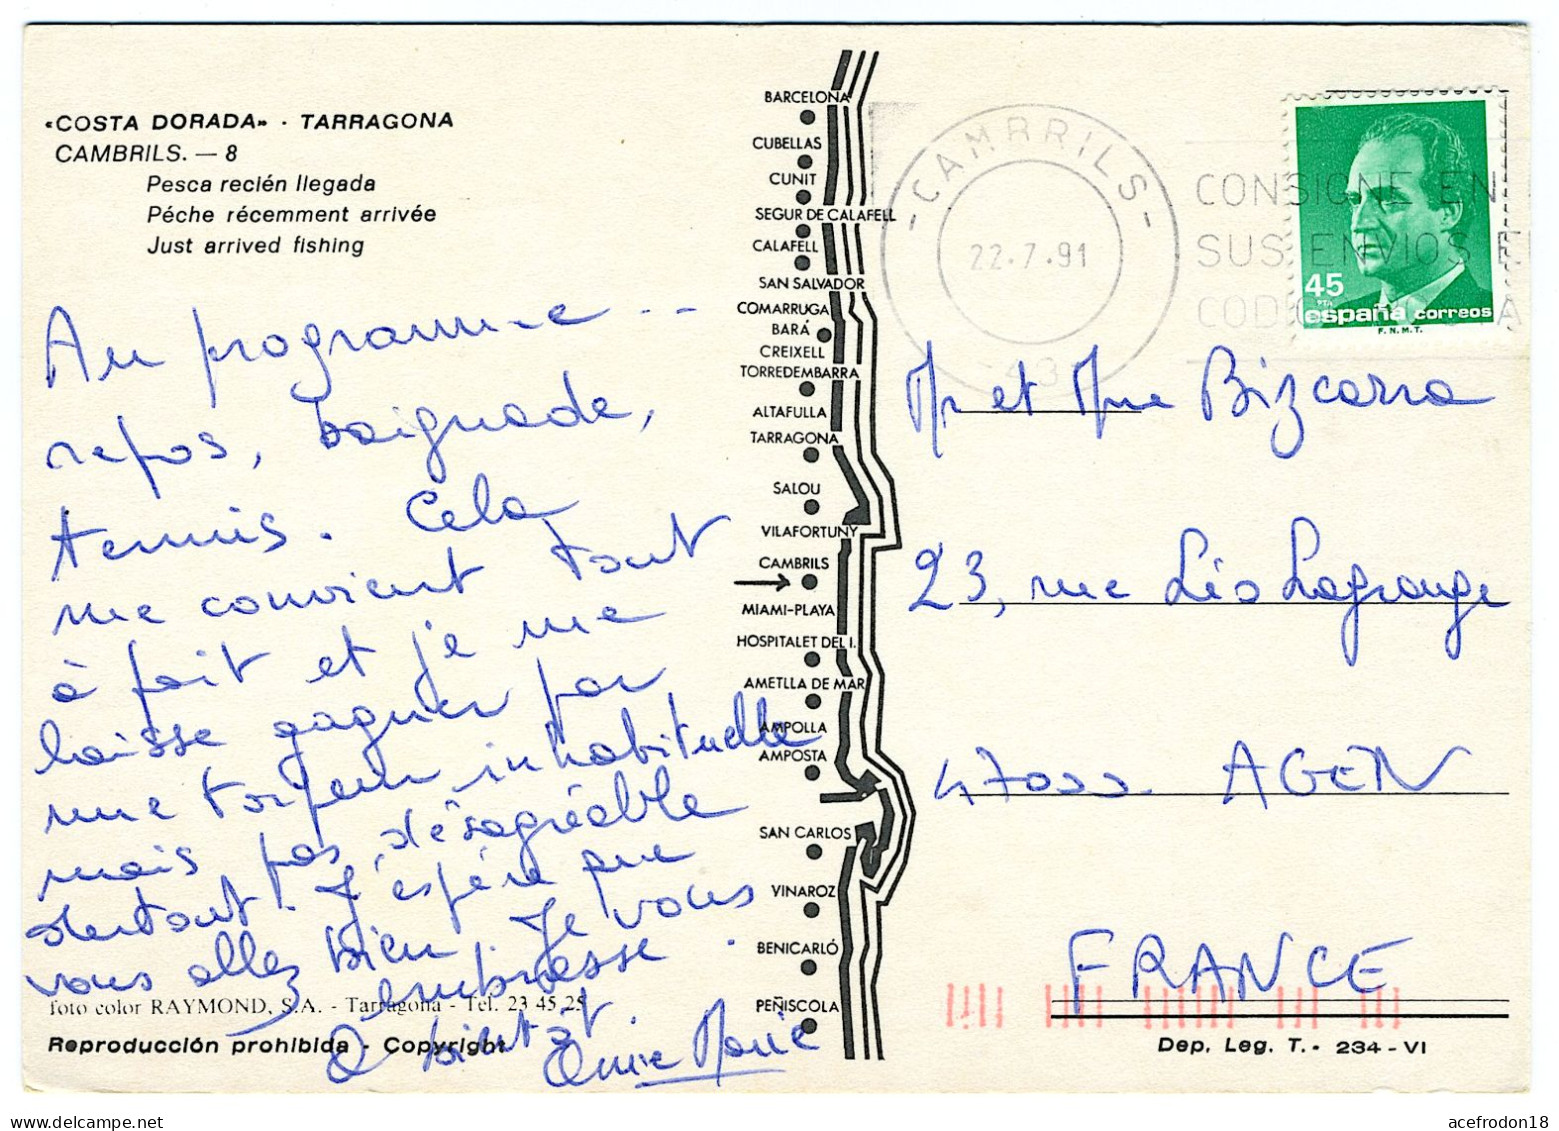 «COSTA DORADA» - TARRAGONA
CAMBRILS. — 8
Pesca recién llegada
Péche récemment arrivée
Just arrived fishing
Au programme ..
repos, baignade,
tennis. Cela
me convient tout
à fait et je me
laisse gagner par
une torpeur inhabituelle
mais pas désagréable
surtout. J'espère que
vous allez bien. Je vous
embrasse.
A bientôt.
Anne Marie
foto color RAYMOND, S.A. - Tarragona - Tel. 23 45 25
Reproducción prohibida - Copyright
BARCELONA
CUBELLAS
CUNIT
SEGUR DE CALAFELL
CALAFELL
SAN SALVADOR
COMARRUGA
BARÁ
CREIXELL
TORREDEMBARRA
ALTAFULLA
TARRAGONA
SALOU
VILAFORTUNY
CAMBRILS
MIAMI-PLAYA
HOSPITALET DEL I.
AMETLLA DE MAR
AMPOLLA
AMPOSTA
SAN CARLOS
VINAROZ
BENICARLÓ
PEÑISCOLA
- CAMBRILS -
22.7.91
43
CONSIGNE EN
SUS ENVIOS E
45
PTA
españa correos
F.N.M.T.
Mr et Mme Bizcarra
23, rue Léo Lagrange
47000 AGEN
FRANCE
Dep. Leg. T. - 234 - VI
acefrodon18